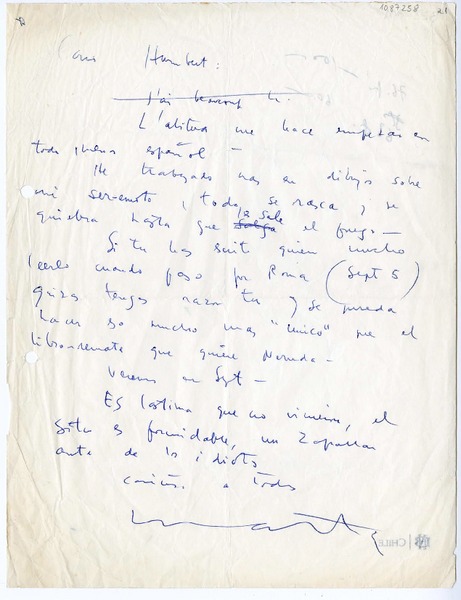 1087258
21
Caro Humbert:
J'ai beaucoup
L'altura me hace empezar en
todo menos español -
He trabajado mas en dibujos sobre
mi ser-emoto, todo se rasca y se
quiebra hasta que salga ya sale el fuego -
Si tu has quien mucho
leerlo cuando paso por Roma (Sept 5)
quizas tengas razon tu y se pueda
hacer so mucho mas "unico" que el
libro-remate que quiere Neruda -
Veremos en Sept -
Es lastima que no vinieras, el
sitio es formidable, un Zapallar
antes de los idiots
cariños a todos
Matta
CHILE